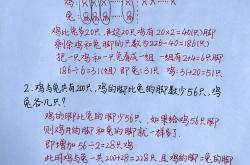 鸡: X X … X
兔: X X … X
鸡比兔多20只，那这20只鸡应有20×2=40(只)脚
剩余鸡和兔的脚的只数为226-40=186(只)
把一只鸡和一只兔看成一组，一组有2+4=6只脚
186÷6=31(组) 即兔31只 鸡: 31+20=51只
2. 鸡与兔共有200只，鸡的脚比兔的脚的只数少56只，鸡兔
各几只?
鸡的脚比兔的脚少56只，如果给鸡56只脚
则鸡的脚和兔的脚就一样多了.
即增加 56÷2=28只
此时鸡与兔一共 200+28=228只 且鸡的脚=兔的脚